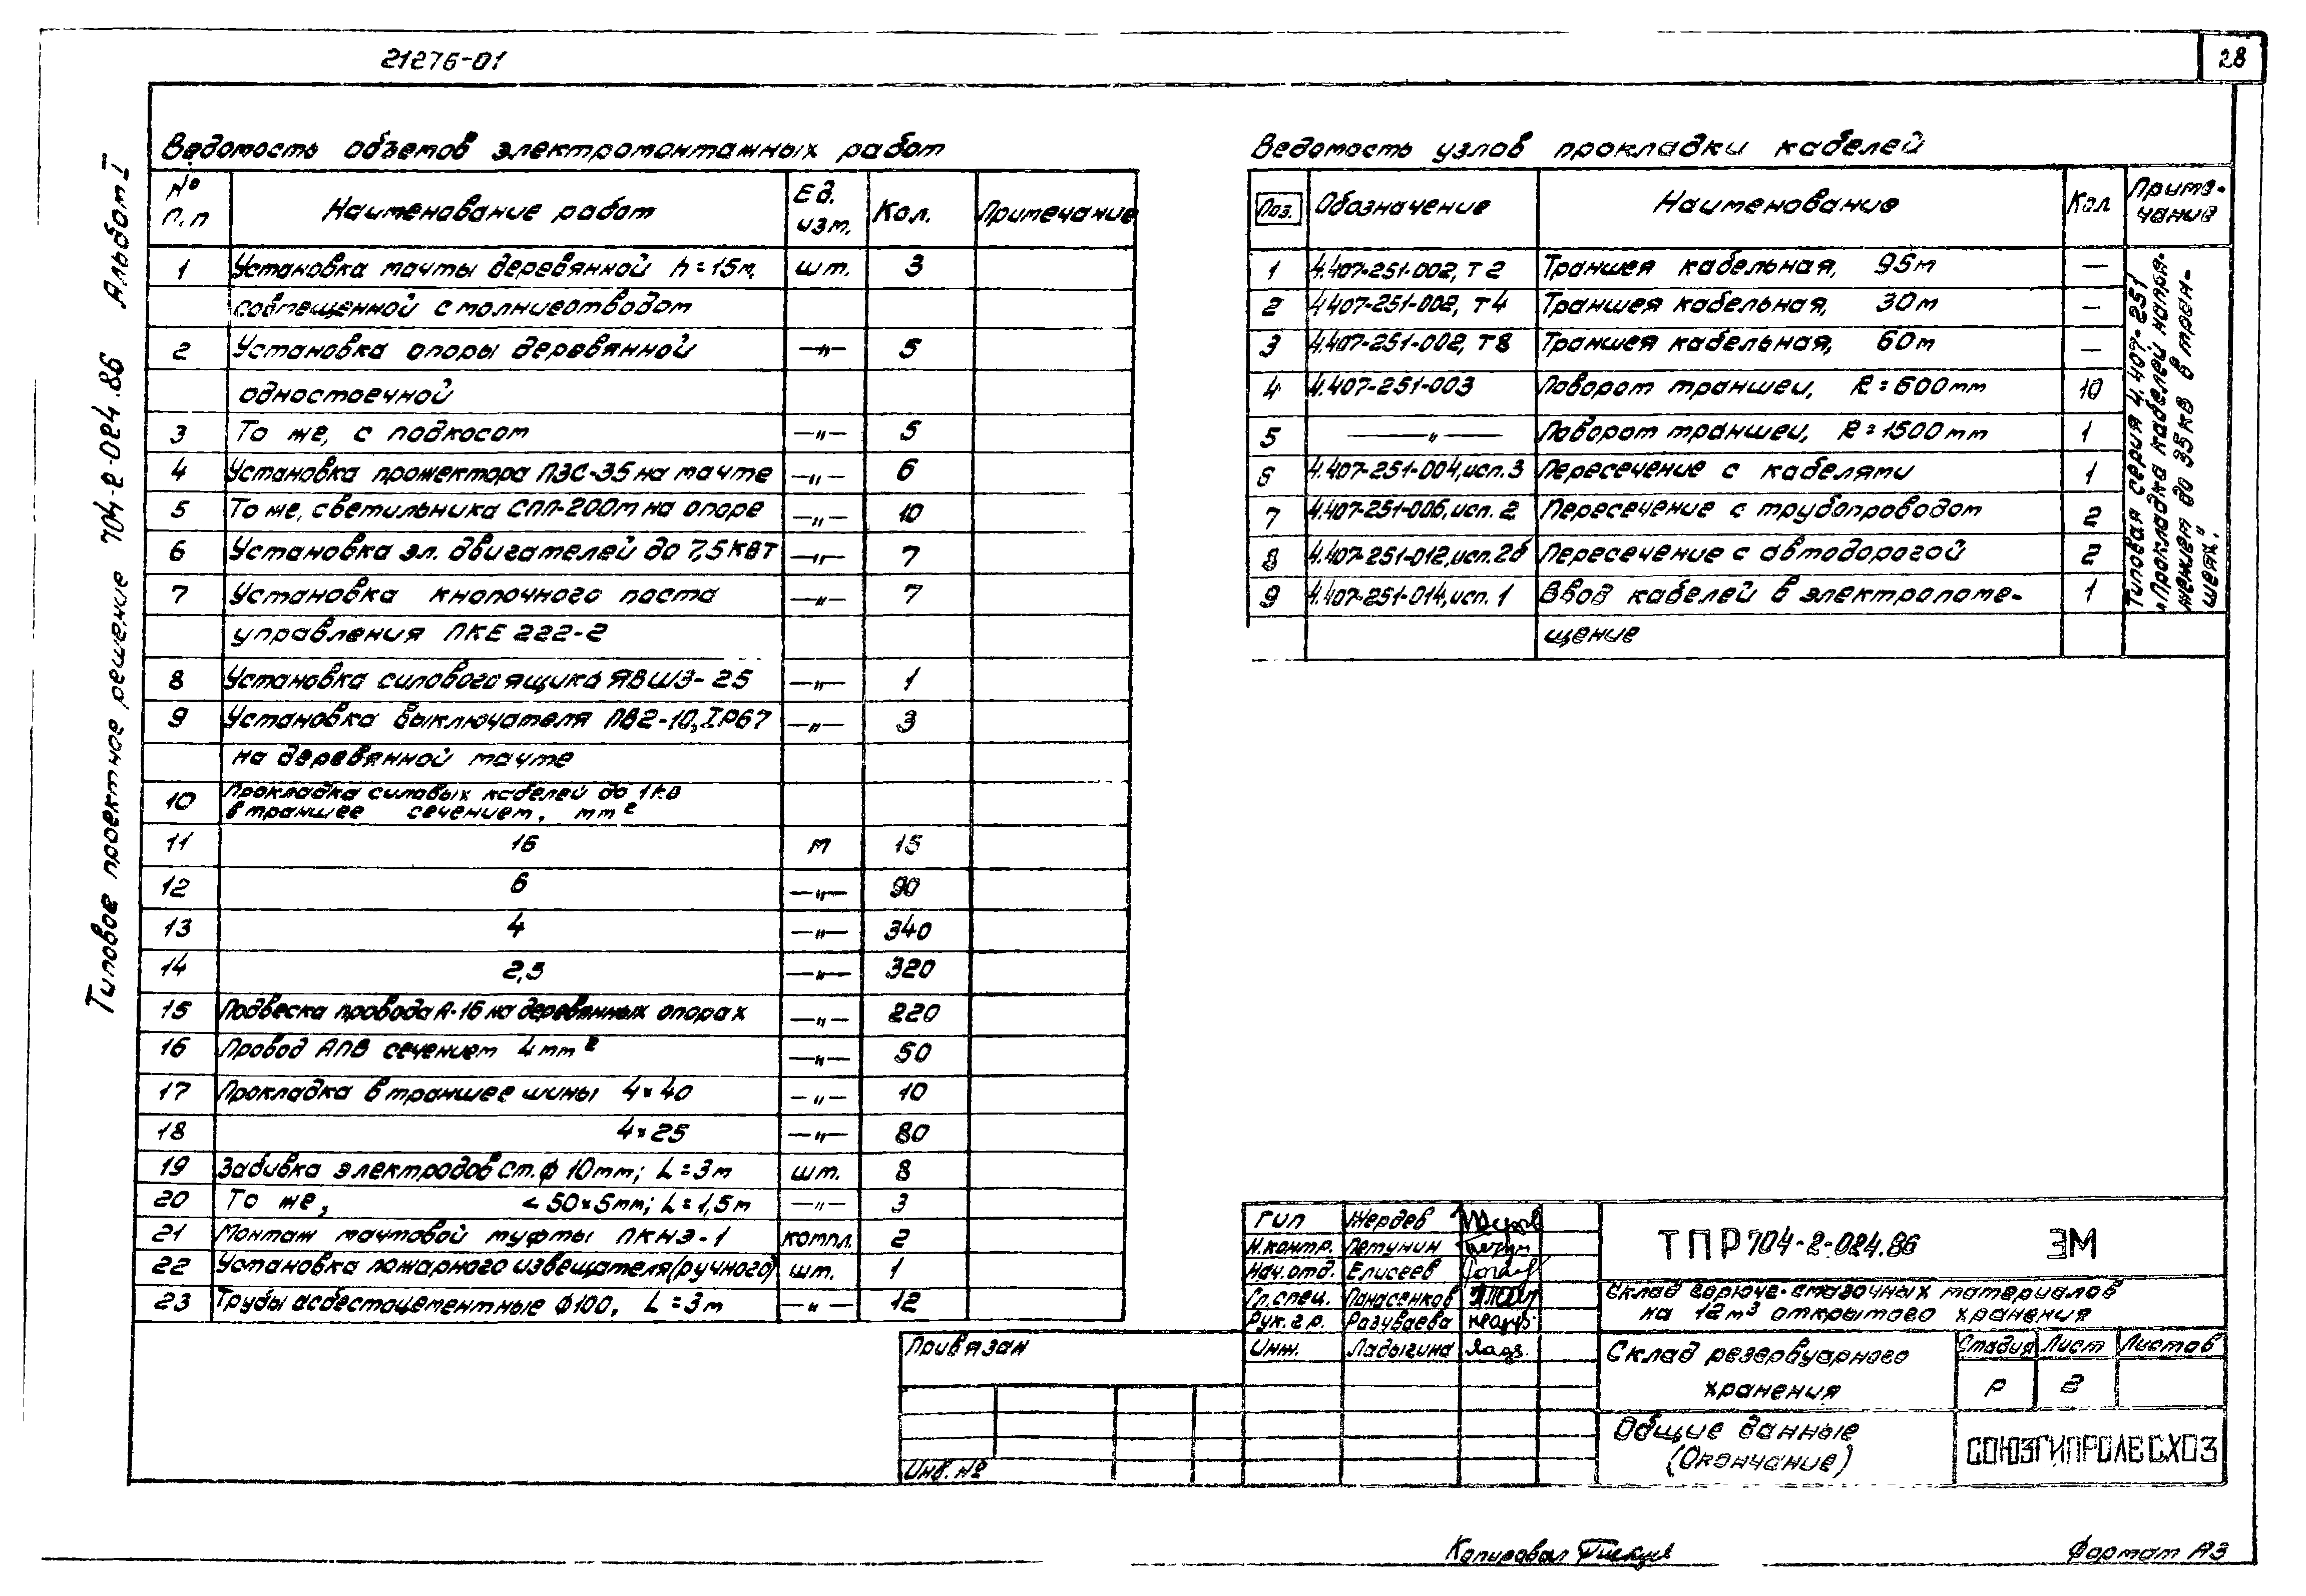 21276-01
28
Типовое проектное решение 704-2-024.86 Альбом I
Ведомость объемов электромонтажных работ
№ п.п Наименование работ Ед. изм. Кол. Примечание
1 Установка мачты деревянной h=15м, шт. 3
совмещенной с молниеотводом
2 Установка опоры деревянной —"— 5
одностоечной
3 То же, с подкосом —"— 5
4 Установка прожектора ПЗС-35 на мачте —"— 6
5 То же, светильника СПП-200м на опоре —"— 10
6 Установка эл. двигателей до 7,5 кВт —"— 7
7 Установка кнопочного поста —"— 7
управления ПКЕ 222-2
8 Установка силового ящика ЯВШ3-25 —"— 1
9 Установка выключателя ПВ2-10, IP67 —"— 3
на деревянной мачте
10 Прокладка силовых кабелей до 1кВ
в траншее сечением, мм²
11 16 м 15
12 6 —"— 90
13 4 —"— 340
14 2,5 —"— 320
15 Подвеска провода А-16 на деревянных опорах —"— 220
16 Провод АПВ сечением 4мм² —"— 50
17 Прокладка в траншее шины 4×40 —"— 10
18 4×25 —"— 80
19 Забивка электродов Ст. ф 10мм; L=3м шт. 8
20 То же, ∠50×5мм; L=1,5м —"— 3
21 Монтаж мачтовой муфты ПКНЭ-1 компл. 2
22 Установка пожарного извещателя (ручного) шт. 1
23 Трубы асбестоцементные ф100, L=3м —"— 12
Ведомость узлов прокладки кабелей
Поз. Обозначение Наименование Кол Приме-
чание
1 4.407-251-002, Т2 Траншея кабельная, 95м —
2 4.407-251-002, Т4 Траншея кабельная, 30м —
3 4.407-251-002, Т8 Траншея кабельная, 60м —
4 4.407-251-003 Поворот траншеи, R=600мм 10
5 —"— Поворот траншеи, R=1500мм 1
6 4.407-251-004, исп. 3 Пересечение с кабелями 1
7 4.407-251-006, исп. 2 Пересечение с трубопроводом 2
8 4.407-251-012, исп. 2б Пересечение с автодорогой 2
9 4.407-251-014, исп. 1 Ввод кабелей в электропоме-
щение 1
Типовая серия 4.407-251
"Прокладка кабелей напря-
жением до 35кВ в тран-
шеях."
ГИП Жердев
Н.контр. Петунин
Нач.отд. Елисеев
Гл.спец. Панасенков
Рук.гр. Разуваева
Инж. Ладыгина
ТПР 704-2-024.86 ЭМ
Склад горюче-смазочных материалов
на 12м³ открытого хранения
Склад резервуарного
хранения
Стадия Лист Листов
Р 2
Общие данные
(Окончание)
СОЮЗГИПРОЛЕСХОЗ
Привязан
Инв. №
Копировал
Формат А3